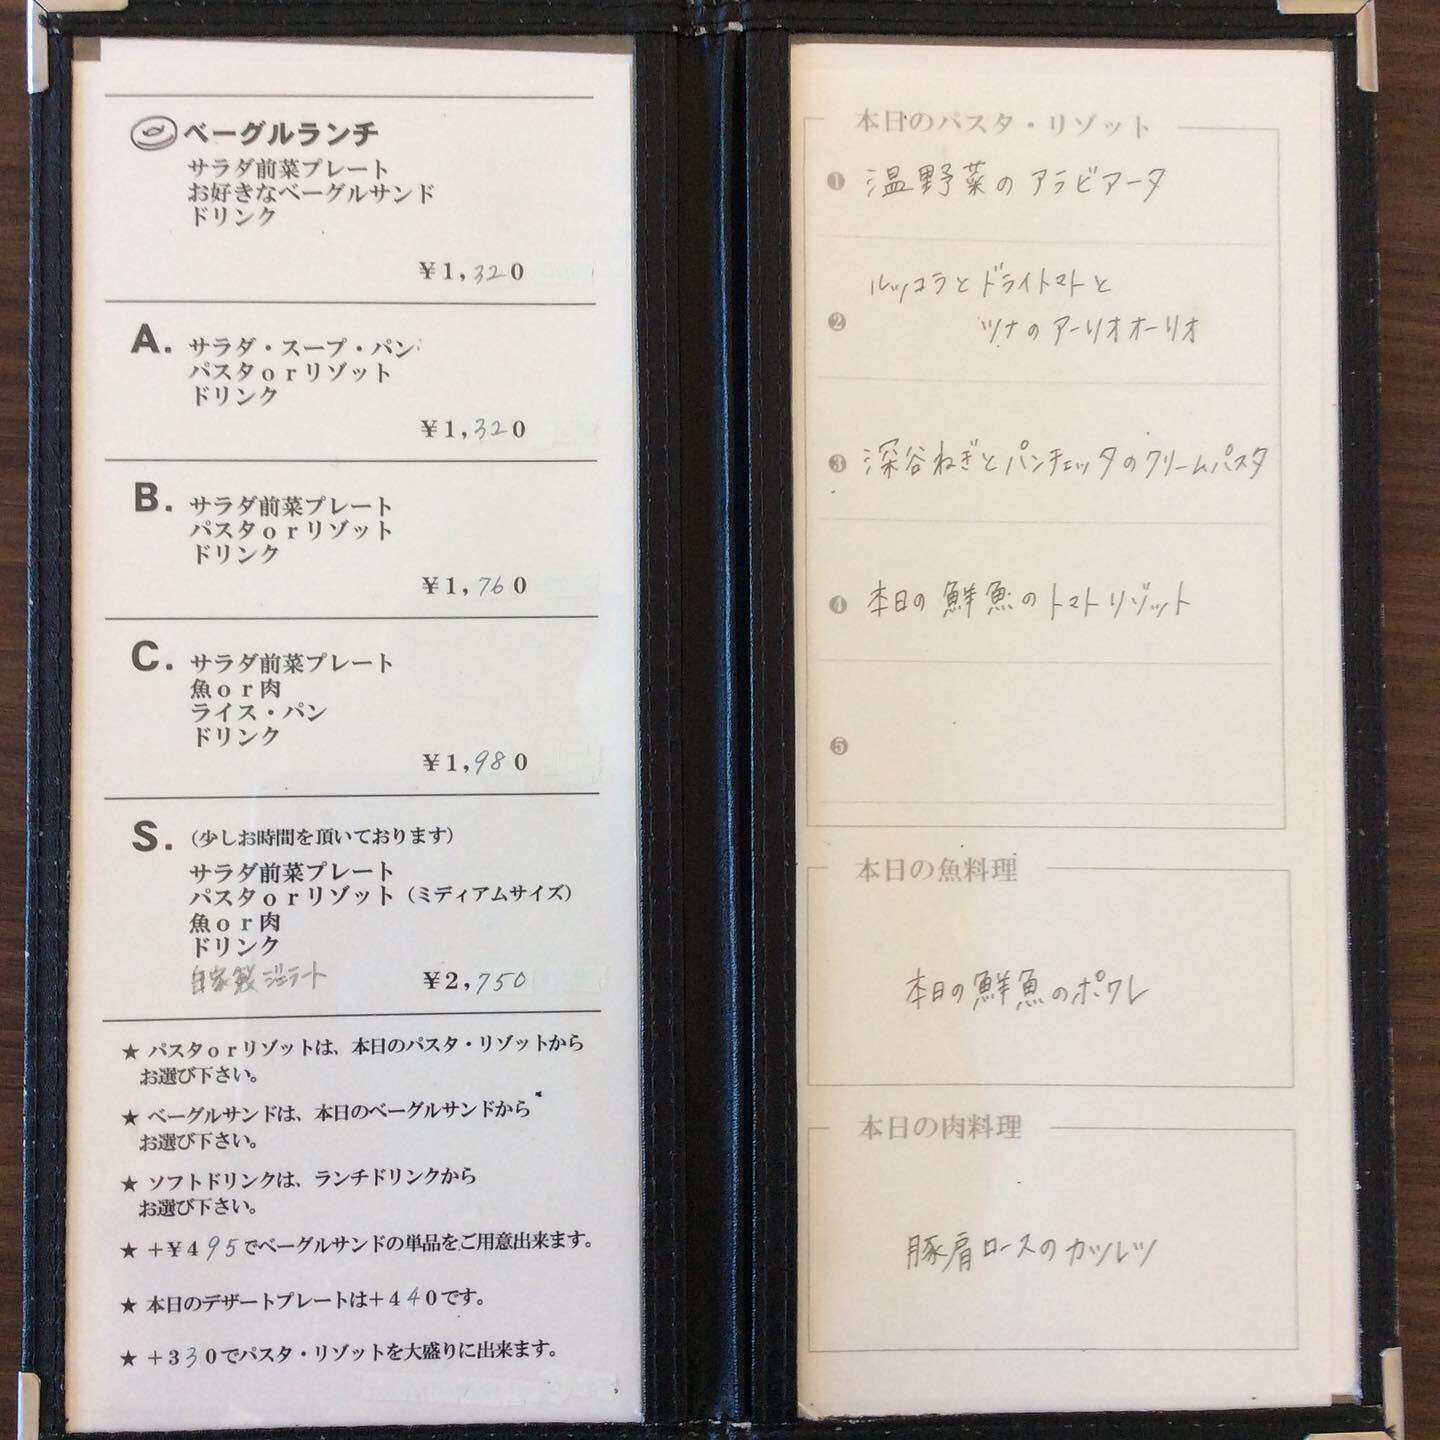 ベーグルランチ
サラダ前菜プレート
お好きなベーグルサンド
ドリンク
¥1,320
A. サラダ・スープ・パン
パスタorリゾット
ドリンク
¥1,320
B. サラダ前菜プレート
パスタorリゾット
ドリンク
¥1,760
C. サラダ前菜プレート
魚or肉
ライス・パン
ドリンク
¥1,980
S. (少しお時間を頂いております)
サラダ前菜プレート
パスタorリゾット(ミディアムサイズ)
魚or肉
ドリンク
自家製ジェラート ¥2,750
★ パスタorリゾットは、本日のパスタ・リゾットから
お選び下さい。
★ ベーグルサンドは、本日のベーグルサンドから
お選び下さい。
★ ソフトドリンクは、ランチドリンクから
お選び下さい。
★ +¥495でベーグルサンドの単品をご用意出来ます。
★ 本日のデザートプレートは+440です。
★ +330でパスタ・リゾットを大盛りに出来ます。
本日のパスタ・リゾット
❶ 温野菜のアラビアータ
ルッコラとドライトマトと
❷ ツナのアーリオオーリオ
❸ 深谷ねぎとパンチェッタのクリームパスタ
❹ 本日の鮮魚のトマトリゾット
❺
本日の魚料理
本日の鮮魚のポワレ
本日の肉料理
豚肩ロースのカツレツ